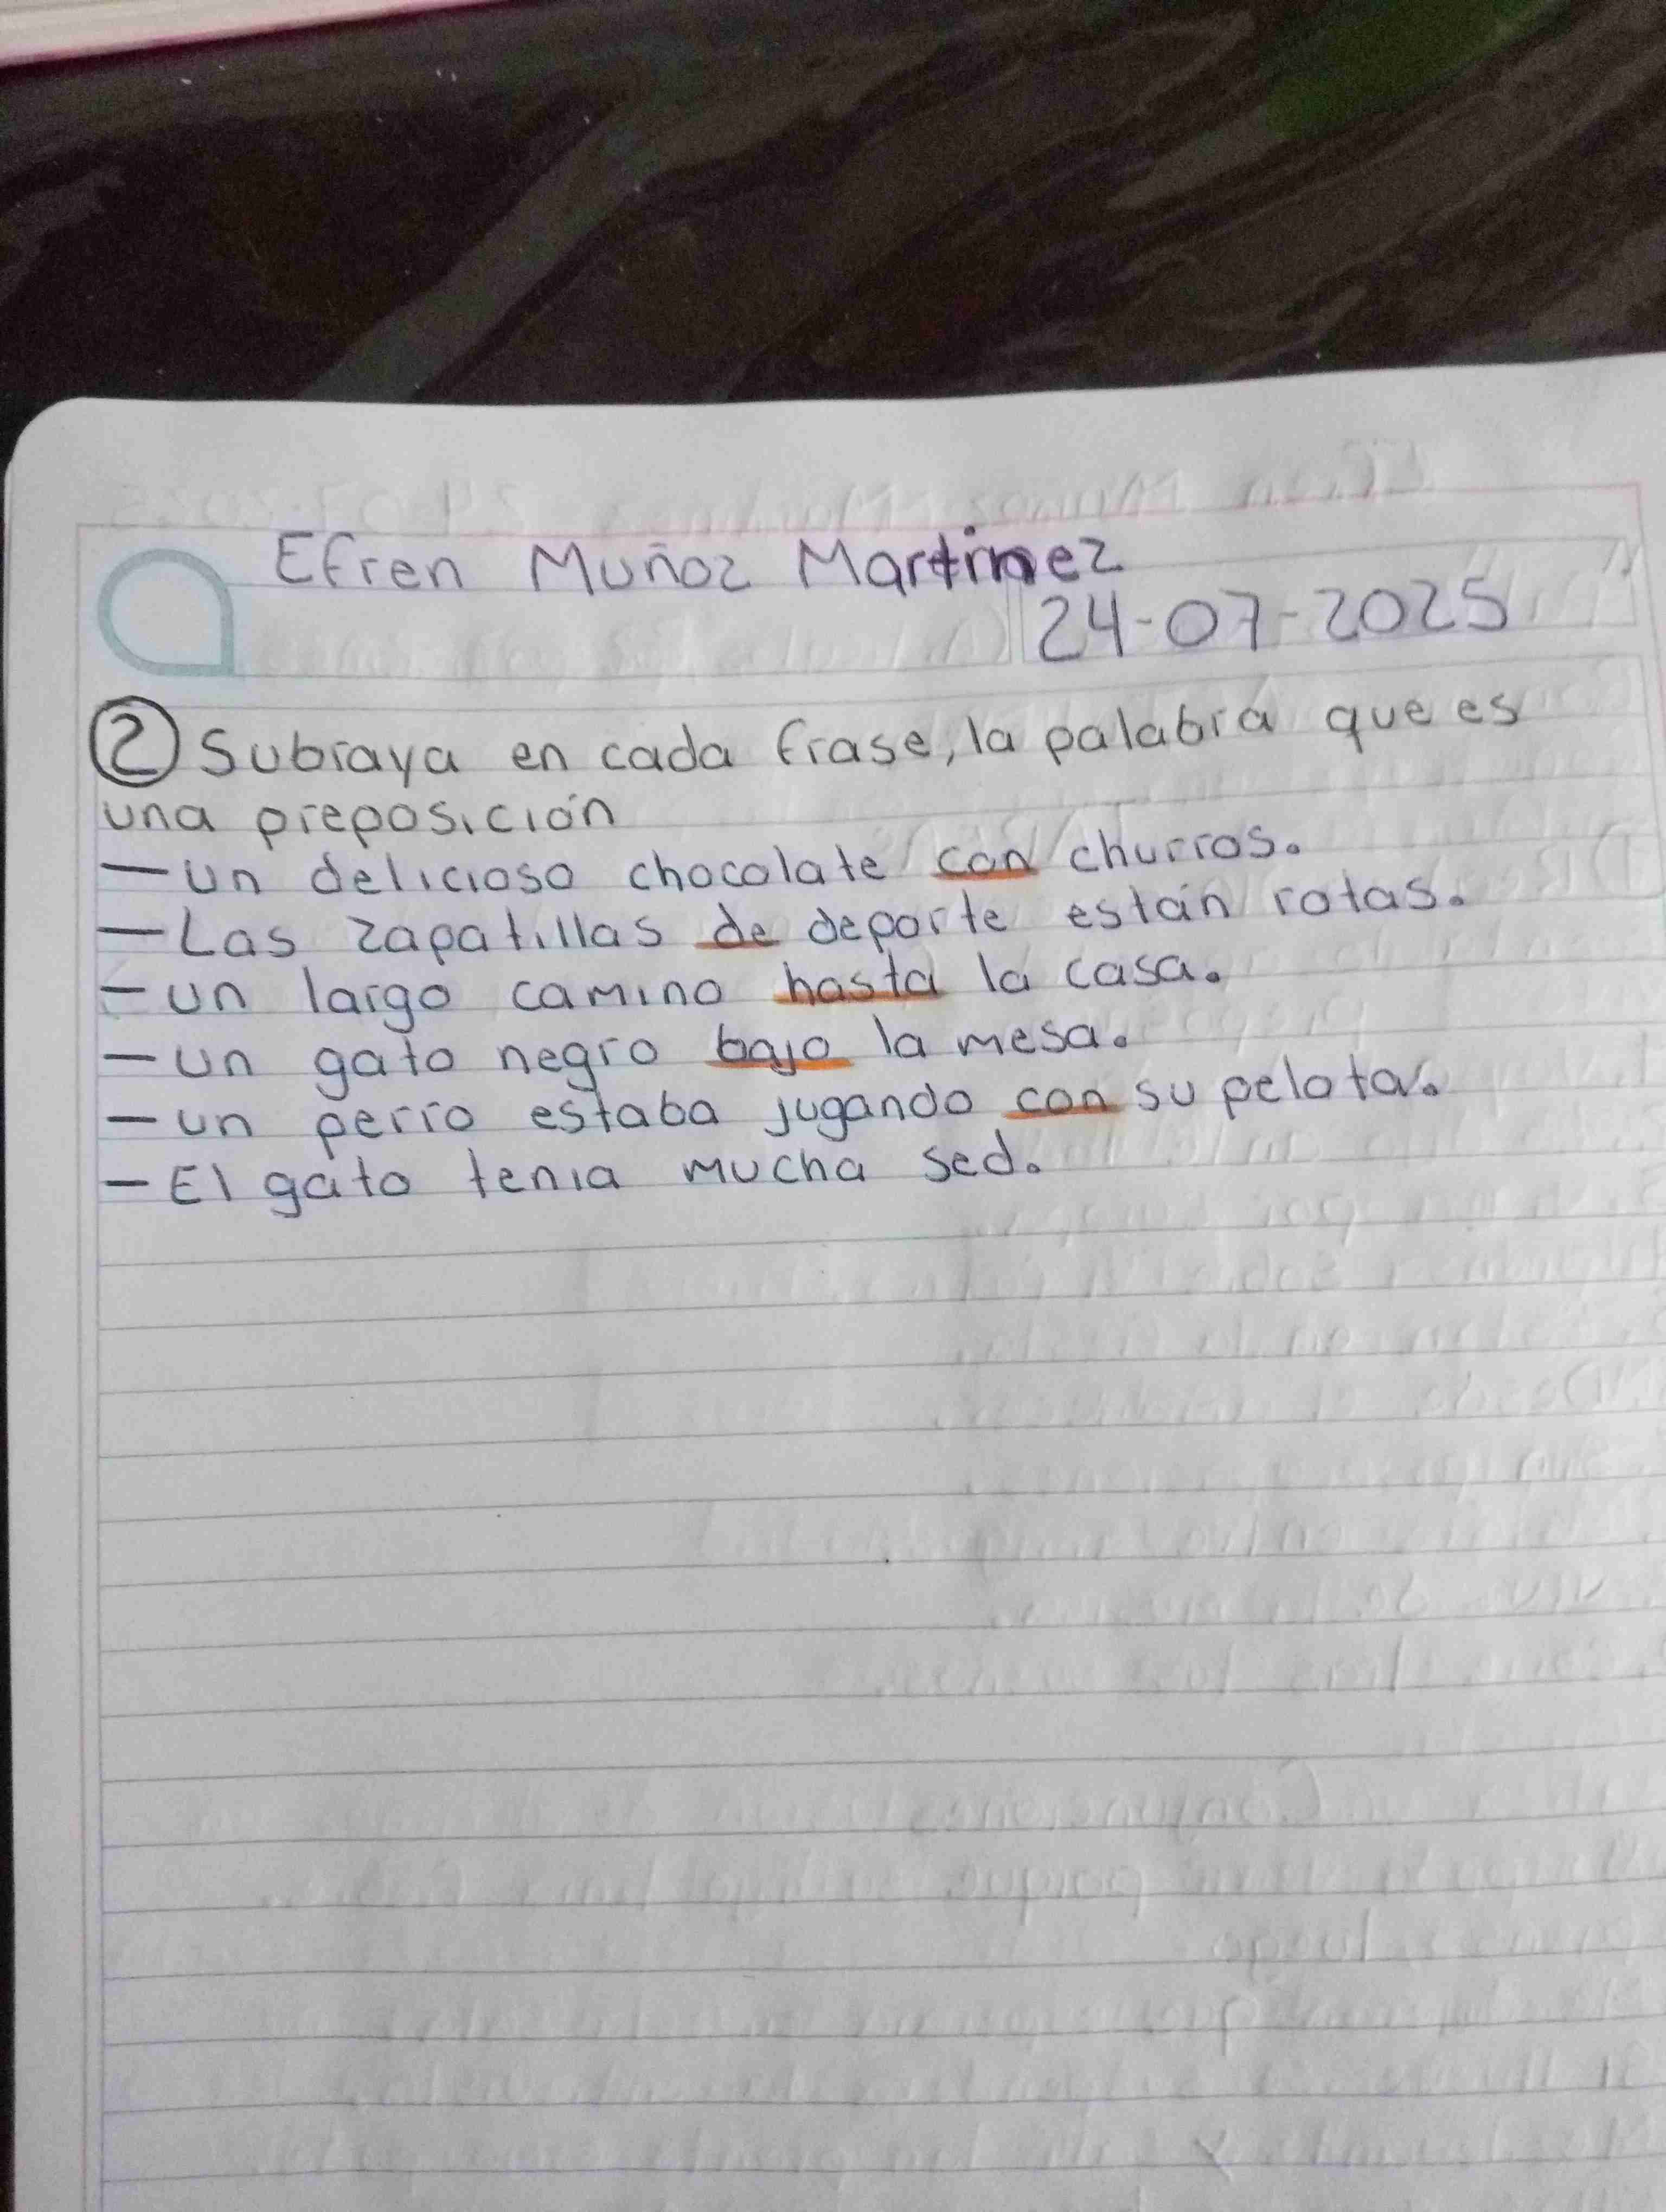 Efren Muñoz Martinez
24-07-2025
2 Subraya en cada frase, la palabra que es
una preposición
— un delicioso chocolate con churros.
— Las zapatillas de deporte están rotas.
— un largo camino hasta la casa.
— un gato negro bajo la mesa.
— un perro estaba jugando con su pelota.
— El gato tenia mucha sed.